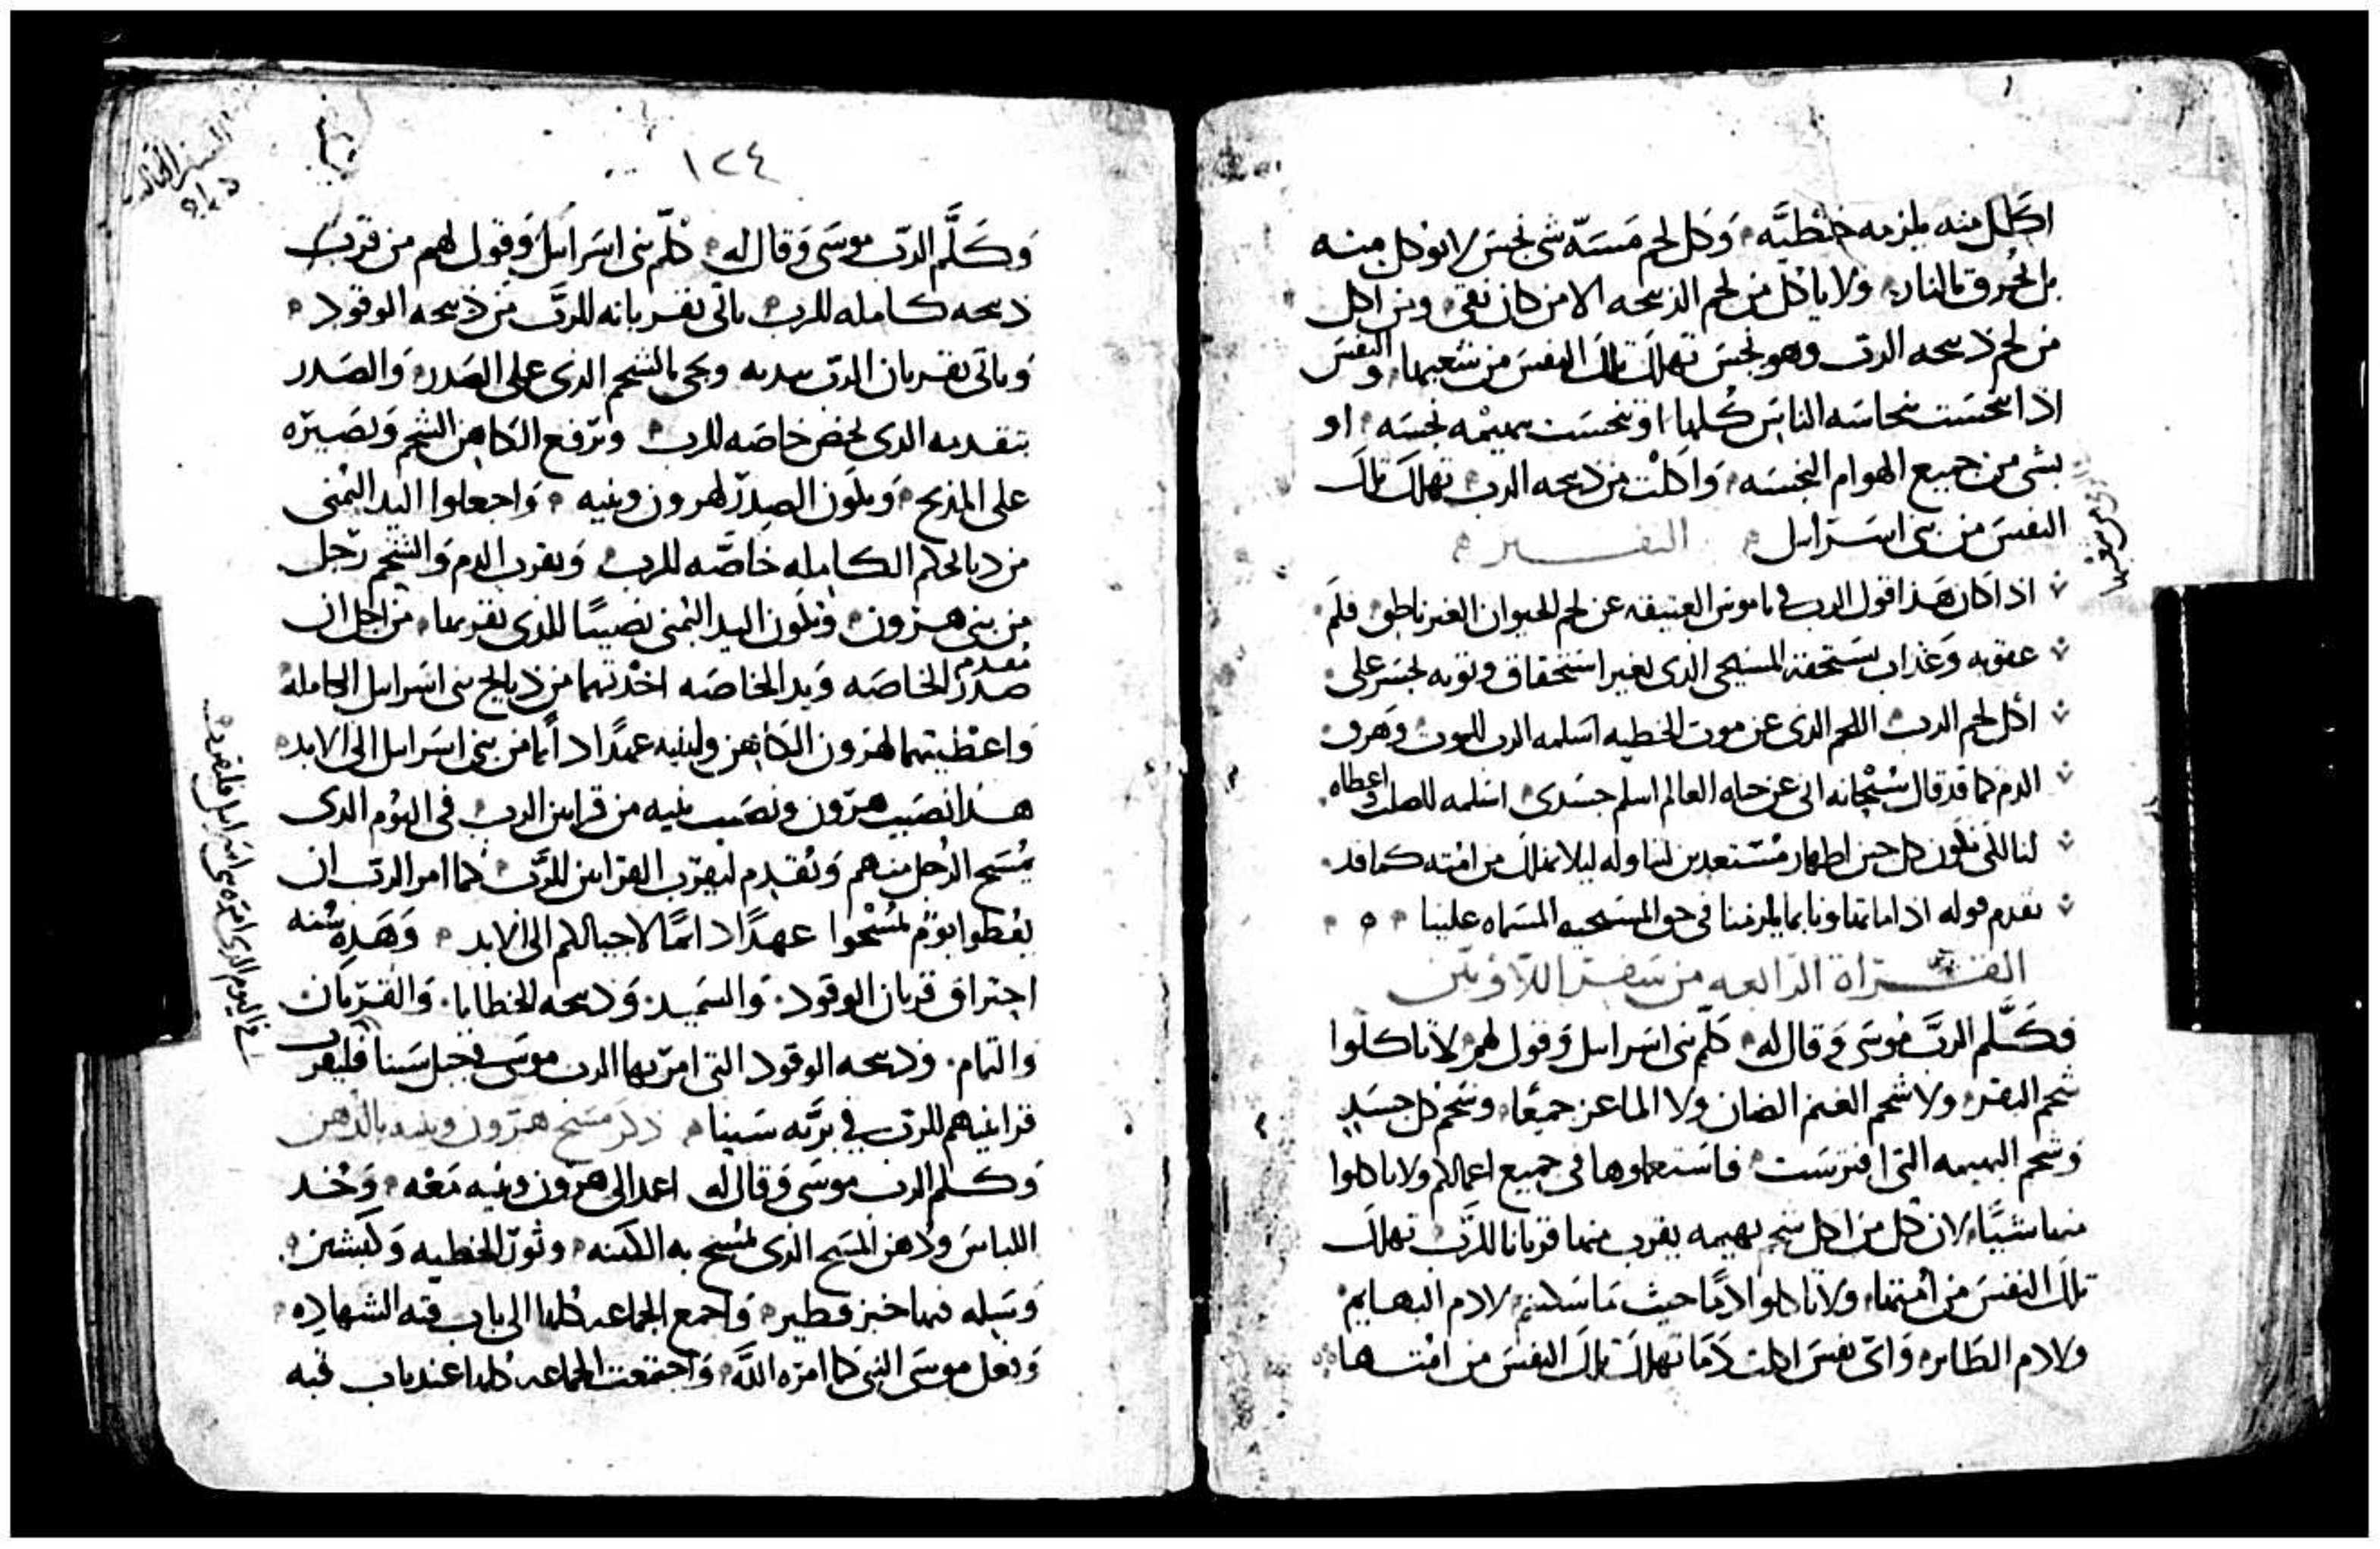 اكل منه يلزمه خطيَّه وَكل لحم مَسَّه شى نجس لا يوكل منه
بل يُحرق بالنار ولا ياكل من لحم الذبيحه الا من كان نقى ومن اكل
من لحم ذبيحه الربّ وهو نجس تهلك تلك النفس من شعبها والنفس
اذا تنجست بنجاسه الناس كُلها او تنجست ببهيمه نجسه او
بشى من جميع الهوام النجسه وَاكلت من ذبيحه الرب تهلك تلك
النفس من بنى اسرايل التفسير
اذا كان هَذا قول الرب فى ناموس العتيقه عن لحم الحيوان الغير ناطق فلَم
عقوبه وَعذاب يستحقه المسيحى الذى بغير استحقاق وتوبه يجسر على
اكل لحم الرب اللحم الذى عن موت الخطيه اسلمه الرب للموت وَهرق
الدم كما قد قال سُبْحانه انى عن حياه العالم اسلم جسدى اسلمه للصلب واعطاه
لنا لكى نكون كل حين اطهار مُستعدين لتناوله ليلا نهلك من امته كما قد
تقدم قوله اذا ما تهاونا بما يلزمنا فى حق المسيحيه المسماه علينا
القراة الرابعه من سفر اللاويين
فكَلَّم الربّ مُوسَى وَقال له كلّم بنى اسرايل وَقول لهم لا تاكلوا
شحم البقر ولا شحم الغنم الضان ولا الماعز جميعًا وشحم كل جسدٍ
وَشحم البهيمه التى افترست فاستعملوها فى جميع اعمالكم ولا تاكلوا
منها شيًّا لان كل من اكل شحم بهيمه يقرب منها قربانا للرَّب تهلك
تلك النفس من امتها ولا تاكلوا دمًا حيث ما سكنتم لا دم البهايم
ولا دم الطاير وَاى نفس اكلت دَمَا تهلك تلك النفس من امتها
١٢٤
وَكَلَّم الربّ موسَى وَقال له كلّم بنى اسرايل وَقول لهم من قرّب
ذبيحه كامله للرب ياتى بقربانه للربّ من ذبيحه الوقود
وَياتى بقربان الربّ بيديه ويجى بالشحم الذى على الصَدر وَالصَدر
بتقدمه الذى يخص خاصه للرب وترفع الكاهن الشحم وَتصَيرّه
على المذبح وَيكون الصدر لهرون وبنيه وَاجعلوا اليد اليُمنى
من ذبايحكم الكامله خاصَّه للرب وَيقرب الدم وَالشحم رجل
من بنى هرون وتكون اليد اليُمنى نصيبًا للذى يقربها من اجل ان
صدر تقدم الخاصَه وَيد الخاصَه اخذتهما من ذبايح بنى اسرايل الكامله
وَاعطيتهما لهرون الكاهن ولبنيه عهدًا دايمًا من بنى اسرايل الى الابد
هذا نصَيب هرّون ونصَيب بنيه من قرابين الرب فى اليُوم الذى
يُمسَح الرُجل منهم وَيُقدم ليقرّب القرابين للرَّب كما امر الربّ ان
يُعطوا يوم يُمسَحوا عهدًا دايمًا لاجيالكم الى الابد وَهَذه سُنه
احتراق قربان الوقود وَالسَميد وَذبيحه الخطايا وَالقربان
وَالتمام وذبيحه الوقود التى امرّ بها الرب موسَى فى جبل سَينا فليقرب
قرابينهم للربّ فى برَّيه سَينا ذكر مسَح هرّون وبنيه بالدهن
وَكلم الرب موسَى وَقال له اعمد الى هرّون وبنيه مَعه وَخُد
اللباس ودُهن المَسح الذى يُمسَح به الكهنه وثور الخطيه وَكبشين
وَسَله فيها خبز فطير وَاجمع الجماعه كلها الى باب قبه الشهاده
وَفعل موسَى النبى كما امَرّه اللَّه وَاجتمعت الجماعه كلها عند باب قبه
فى اليوم الذى امره بنى اسرايل فليقربوا